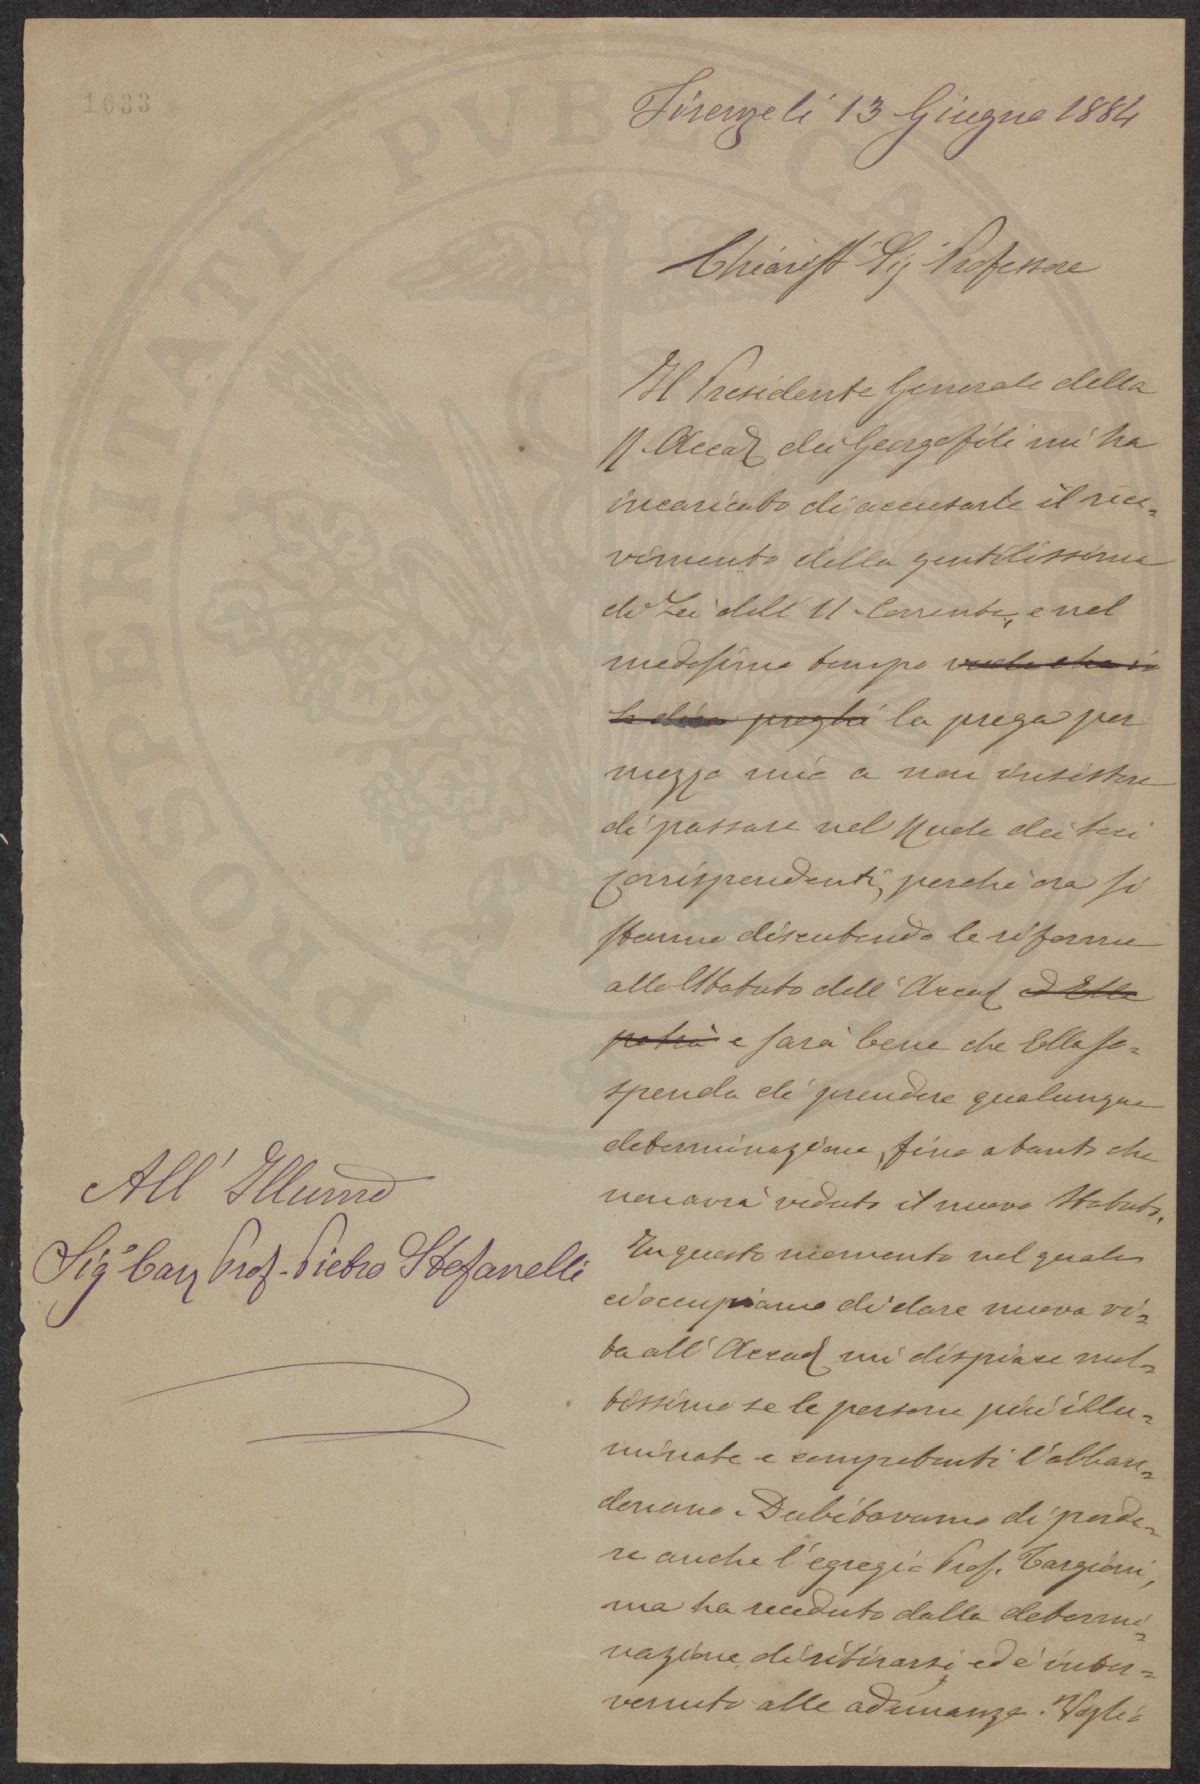 1033
Firenze li 13 Giugno 1884
Chiariss Sig Professore
Il Presidente Generale della
R. Accad dei Georgofili mi ha
incaricato di accusarle il rice=
vimento della gentilissima
di Lei dell' 11 Corrente, e nel
medesimo tempo vuole che io
le dica preghi la prega per
mezzo mio a non insistere
di passare nel Ruolo dei Soci
Corrispondenti, perché ora si
stanno discutendo le riforme
allo Statuto dell' Accad ed Ella
potrà e sarà bene che Ella so=
spenda di prendere qualunque
determinazione, fino a tanto che
non avrà veduto il nuovo Statuto.
In questo momento nel quale
ci occupiamo di dare nuova vi=
ta all' Accad mi dispiace mol=
tissimo se le persone più illu=
minate e competenti l'abban=
donano. Dubitavamo di perde=
re anche l'egregio Prof. Targioni,
ma ha receduto dalla determi=
nazione di ritirarsi ed è inter=
venuto alle adunanze. Voglio
All' Illumo
Sigo Cav Prof. Pietro Stefanelli
PROSPERITATI PVBLICAE